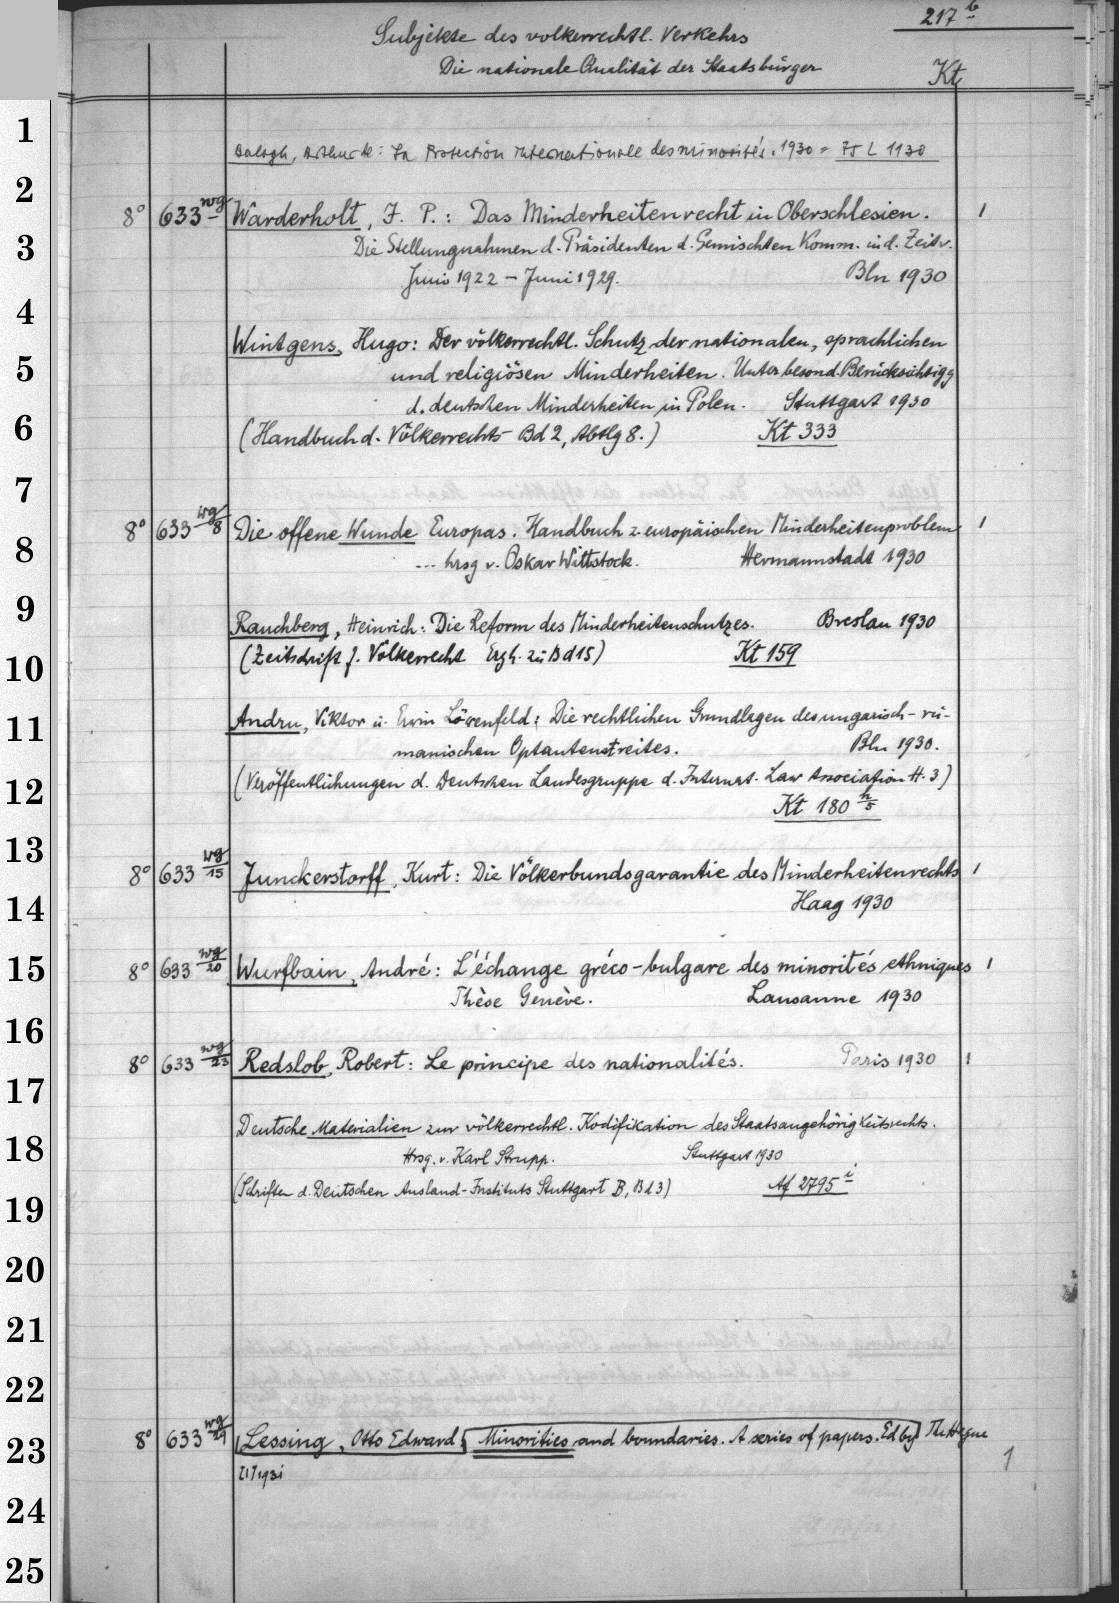 217 b
Subjekte des völkerrechtl. Verkehrs
Die nationale Qualität der Staatsbürger
Kt
1
Balogh, Arthur de: La Protection internationale des minorités. 1930 = JL 1130
2
8° 633 wg Warderholt, J. P.: Das Minderheitenrecht in Oberschlesien. 1
3
Die Stellungnahmen d. Präsidenten d. Gemischten Komm. in d. Zeit v.
Juni 1922 – Juni 1929. Bln 1930
4
Wintgens, Hugo: Der völkerrechtl. Schutz der nationalen, sprachlichen
5
und religiösen Minderheiten. Unter besond. Berücksichtigg
d. deutschen Minderheiten in Polen. Stuttgart 1930
6
(Handbuch d. Völkerrechts Bd 2, Abtlg 8.) Kt 333
7
8° 633 wg/8 Die offene Wunde Europas. Handbuch z. europäischen Minderheitenproblem 1
8
... hrsg v. Oskar Wittstock. Hermannstadt 1930
9
Rauchberg, Heinrich: Die Reform des Minderheitenschutzes. Breslau 1930
10
(Zeitschrift f. Völkerrecht Ergh. zu Bd 15) Kt 159
11
Andru, Viktor u. Erwin Löwenfeld: Die rechtlichen Grundlagen des ungarisch-ru-
manischen Optantenstreites. Bln 1930.
12
(Veröffentlichungen d. Deutschen Landesgruppe d. Internat. Law Association H. 3)
Kt 180 h/5
13
8° 633 wg/15 Junckerstorff, Kurt: Die Völkerbundsgarantie des Minderheitenrechts 1
14
Haag 1930
15
8° 633 wg/20 Wurfbain, André: L'échange gréco-bulgare des minorités ethniques 1
Thèse Genève. Lausanne 1930
16
8° 633 wg/23 Redslob, Robert: Le principe des nationalités. Paris 1930 1
17
Deutsche Materialien zur völkerrechtl. Kodifikation des Staatsangehörigkeitsrechts.
18
Hrsg. v. Karl Strupp. Stuttgart 1930
(Schriften d. Deutschen Ausland-Instituts Stuttgart B, Bd 3) Af 2795 i
19
20
21
22
8° 633 wg/29 Lessing, Otto Edward [Minorities and boundaries. A series of papers. Ed by] The Hague
23
1931 1
24
25